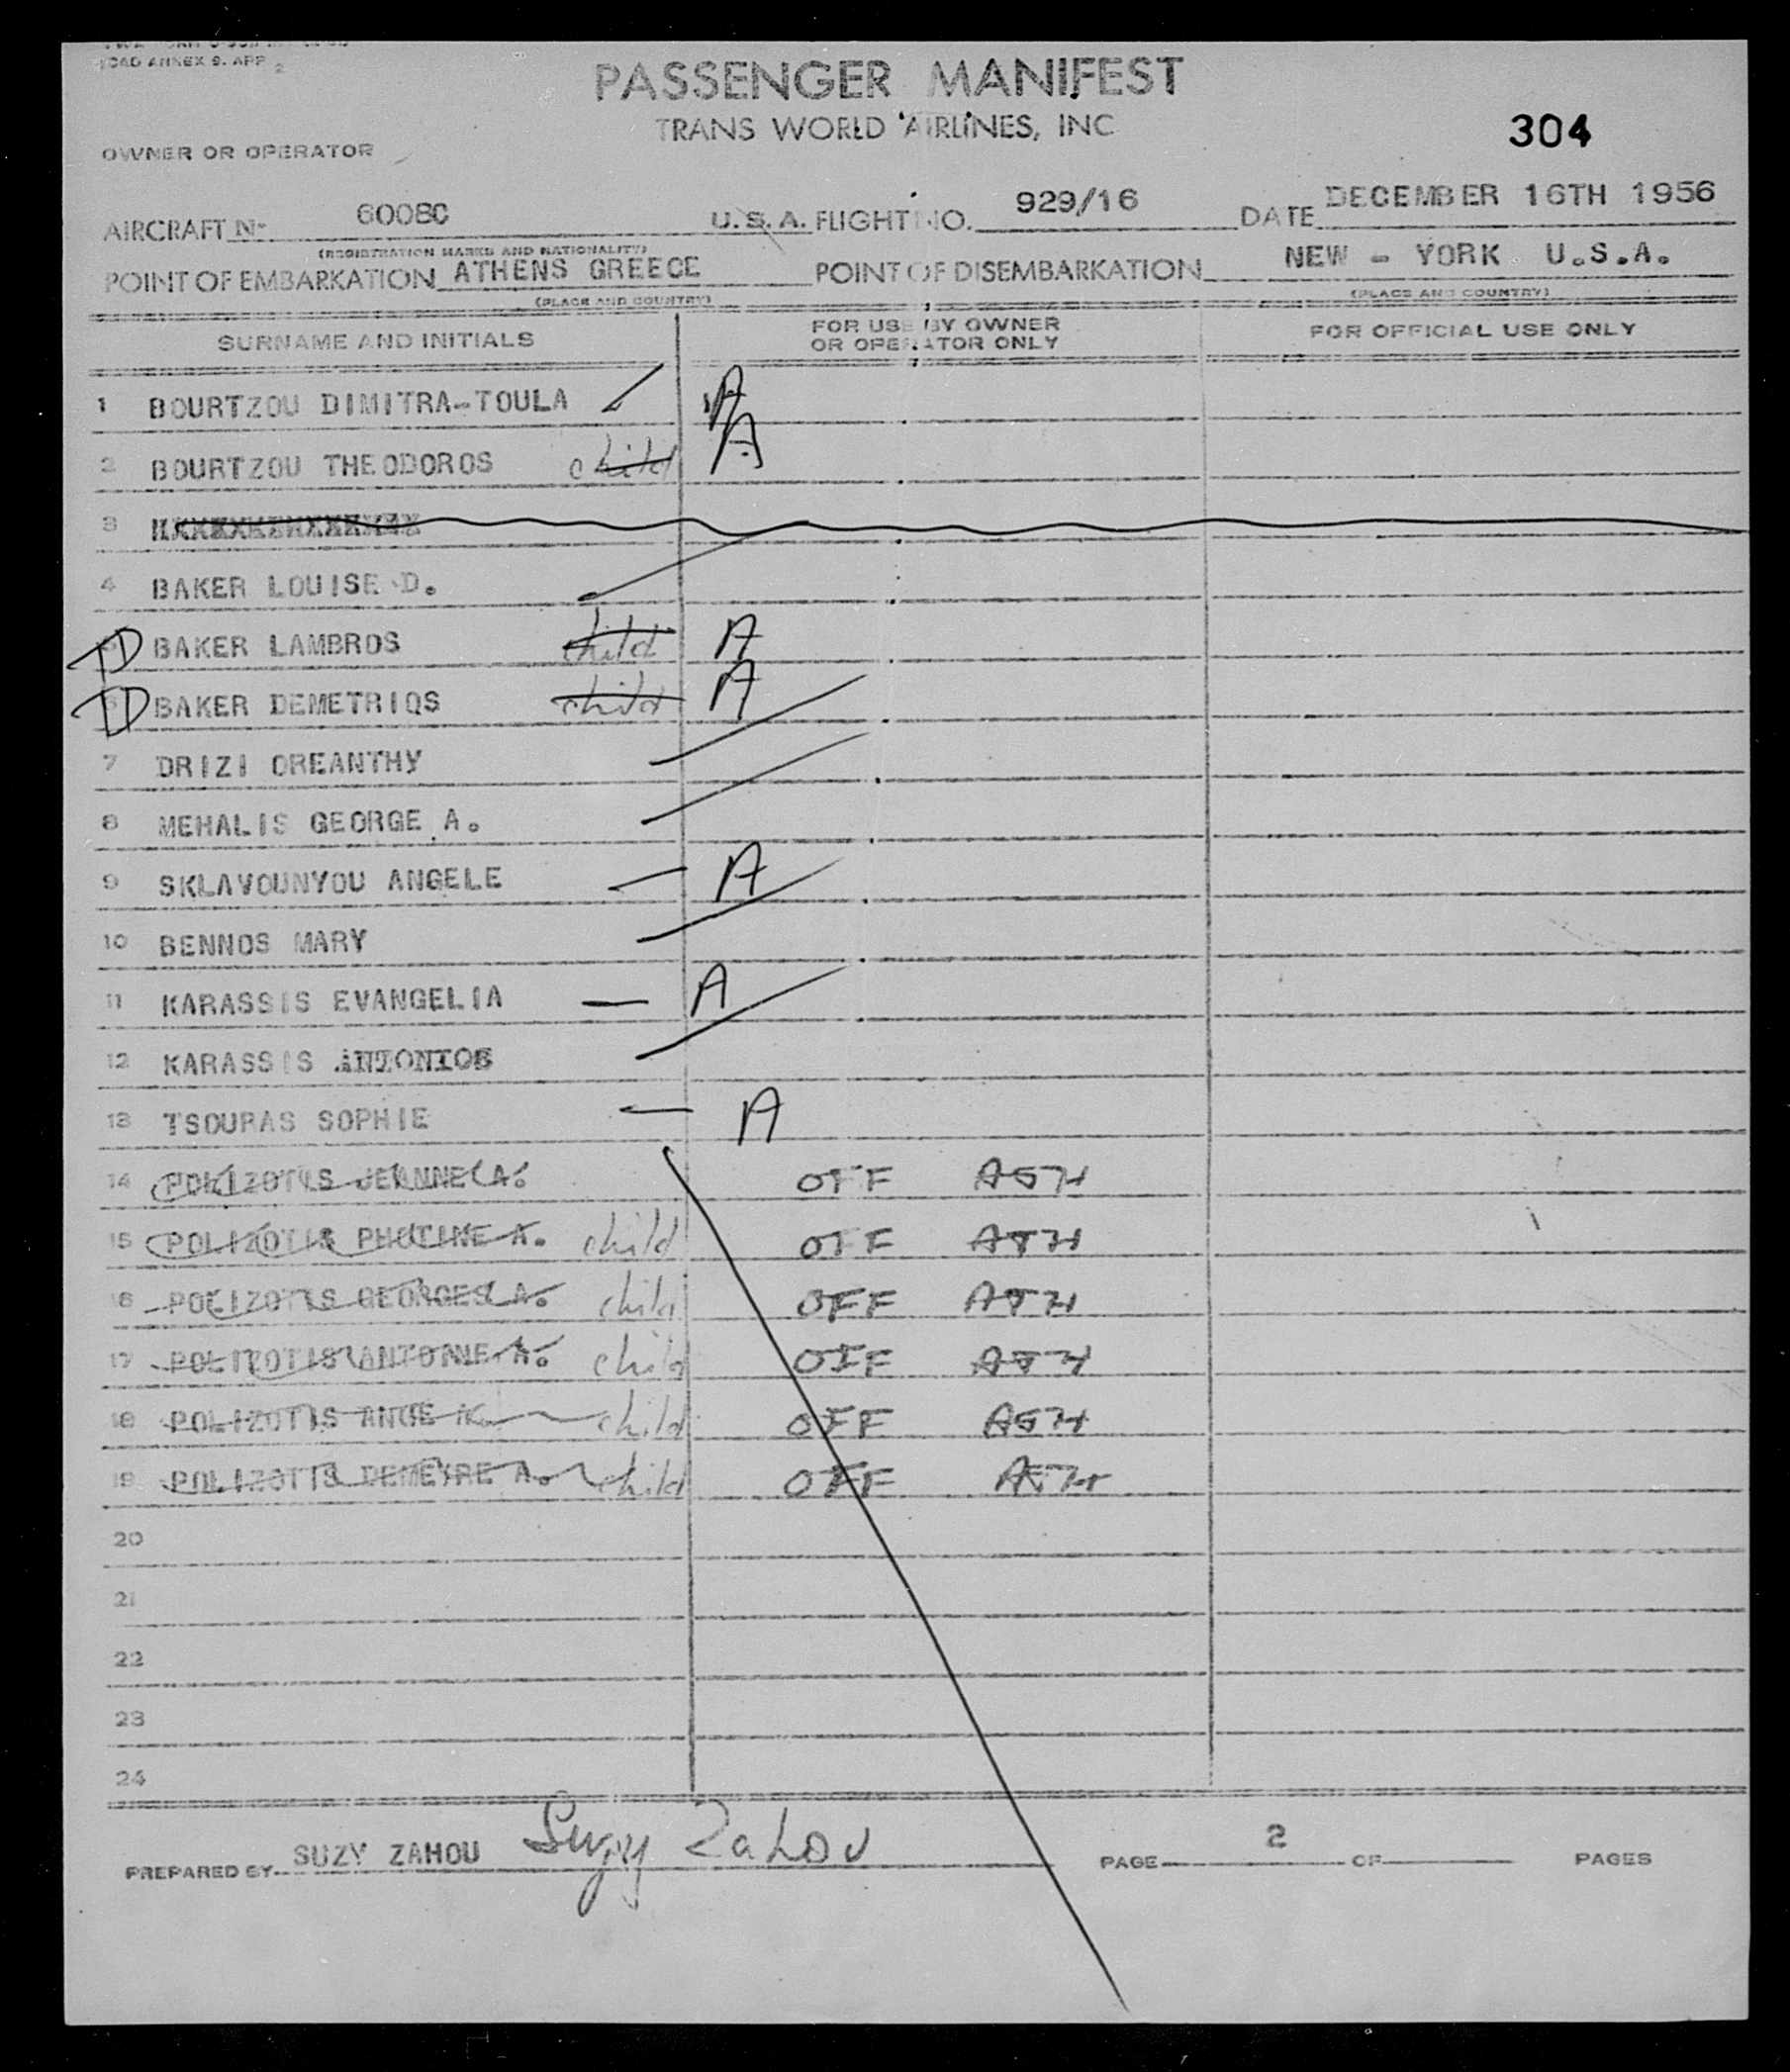 ICAO ANNEX 9. APP 2
PASSENGER MANIFEST
TRANS WORLD AIRLINES, INC
304
OWNER OR OPERATOR
AIRCRAFT No 6008C U.S.A. FLIGHT NO. 929/16 DATE DECEMBER 16TH 1956
(REGISTRATION MARKS AND NATIONALITY)
POINT OF EMBARKATION ATHENS GREECE POINT OF DISEMBARKATION NEW - YORK U.S.A.
(PLACE AND COUNTRY) (PLACE AND COUNTRY)
SURNAME AND INITIALS FOR USE BY OWNER OR OPERATOR ONLY FOR OFFICIAL USE ONLY
1 BOURTZOU DIMITRA-TOULA A
2 BOURTZOU THEODOROS child A
3
4 BAKER LOUISE D.
5 BAKER LAMBROS child A
6 BAKER DEMETRIOS child A
7 DRIZI OREANTHY
8 MEHALIS GEORGE A.
9 SKLAVOUNYOU ANGELE A
10 BENNOS MARY
11 KARASSIS EVANGELIA A
12 KARASSIS ANTONIOS
13 TSOURAS SOPHIE A
14 POLIZOTIS JEANNE A. OFF ATH
15 POLIZOTIS PHOTINE A. child OFF ATH
16 POLIZOTIS GEORGES A. child OFF ATH
17 POLIZOTIS ANTOINE A. child OFF ATH
18 POLIZOTIS ANGE A. child OFF ATH
19 POLIZOTIS DEMETRE A. child OFF ATH
20
21
22
23
24
PREPARED BY SUZY ZAHOU Suzy Zahou PAGE 2 OF PAGES